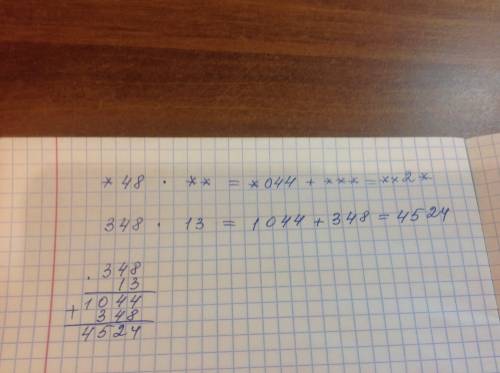 *48 · ** = *044 + *** = **2*
348 · 13 = 1044 + 348 = 4524
. 348
13
1044
+ 348
4524